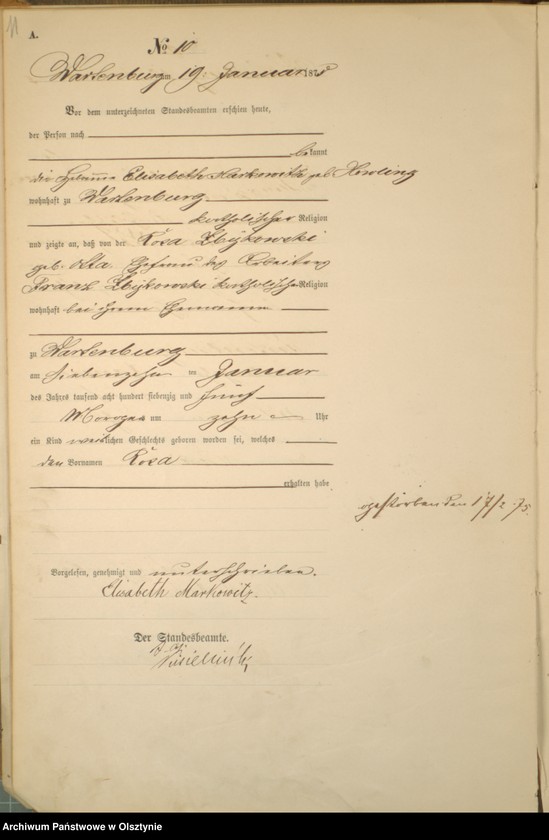 11
A.
№ 10
Wartenburg am 19. Januar 1875
Vor dem unterzeichneten Standesbeamten erschien heute,
der Person nach
bekannt
die Hebamme Elisabeth Markowitz geb. Herding
wohnhaft zu Wartenburg
katholischer Religion
und zeigte an, daß von der Rosa Zbijkowski
geb. Ehefrau des Arbeiters
Franz Zbijkowski katholischer Religion
wohnhaft bei ihrem Ehemann
zu Wartenburg
am siebenzehn ten Januar
des Jahres tausend acht hundert siebenzig und fünf
Morgens um zehn Uhr
ein Kind weiblichen Geschlechts geboren worden sei, welches
den Vornamen Rosa
erhalten habe
gestorben den 17/2 75.
Vorgelesen, genehmigt und unterschrieben.
Elisabeth Markowitz
Der Standesbeamte.
Archiwum Państwowe w Olsztynie